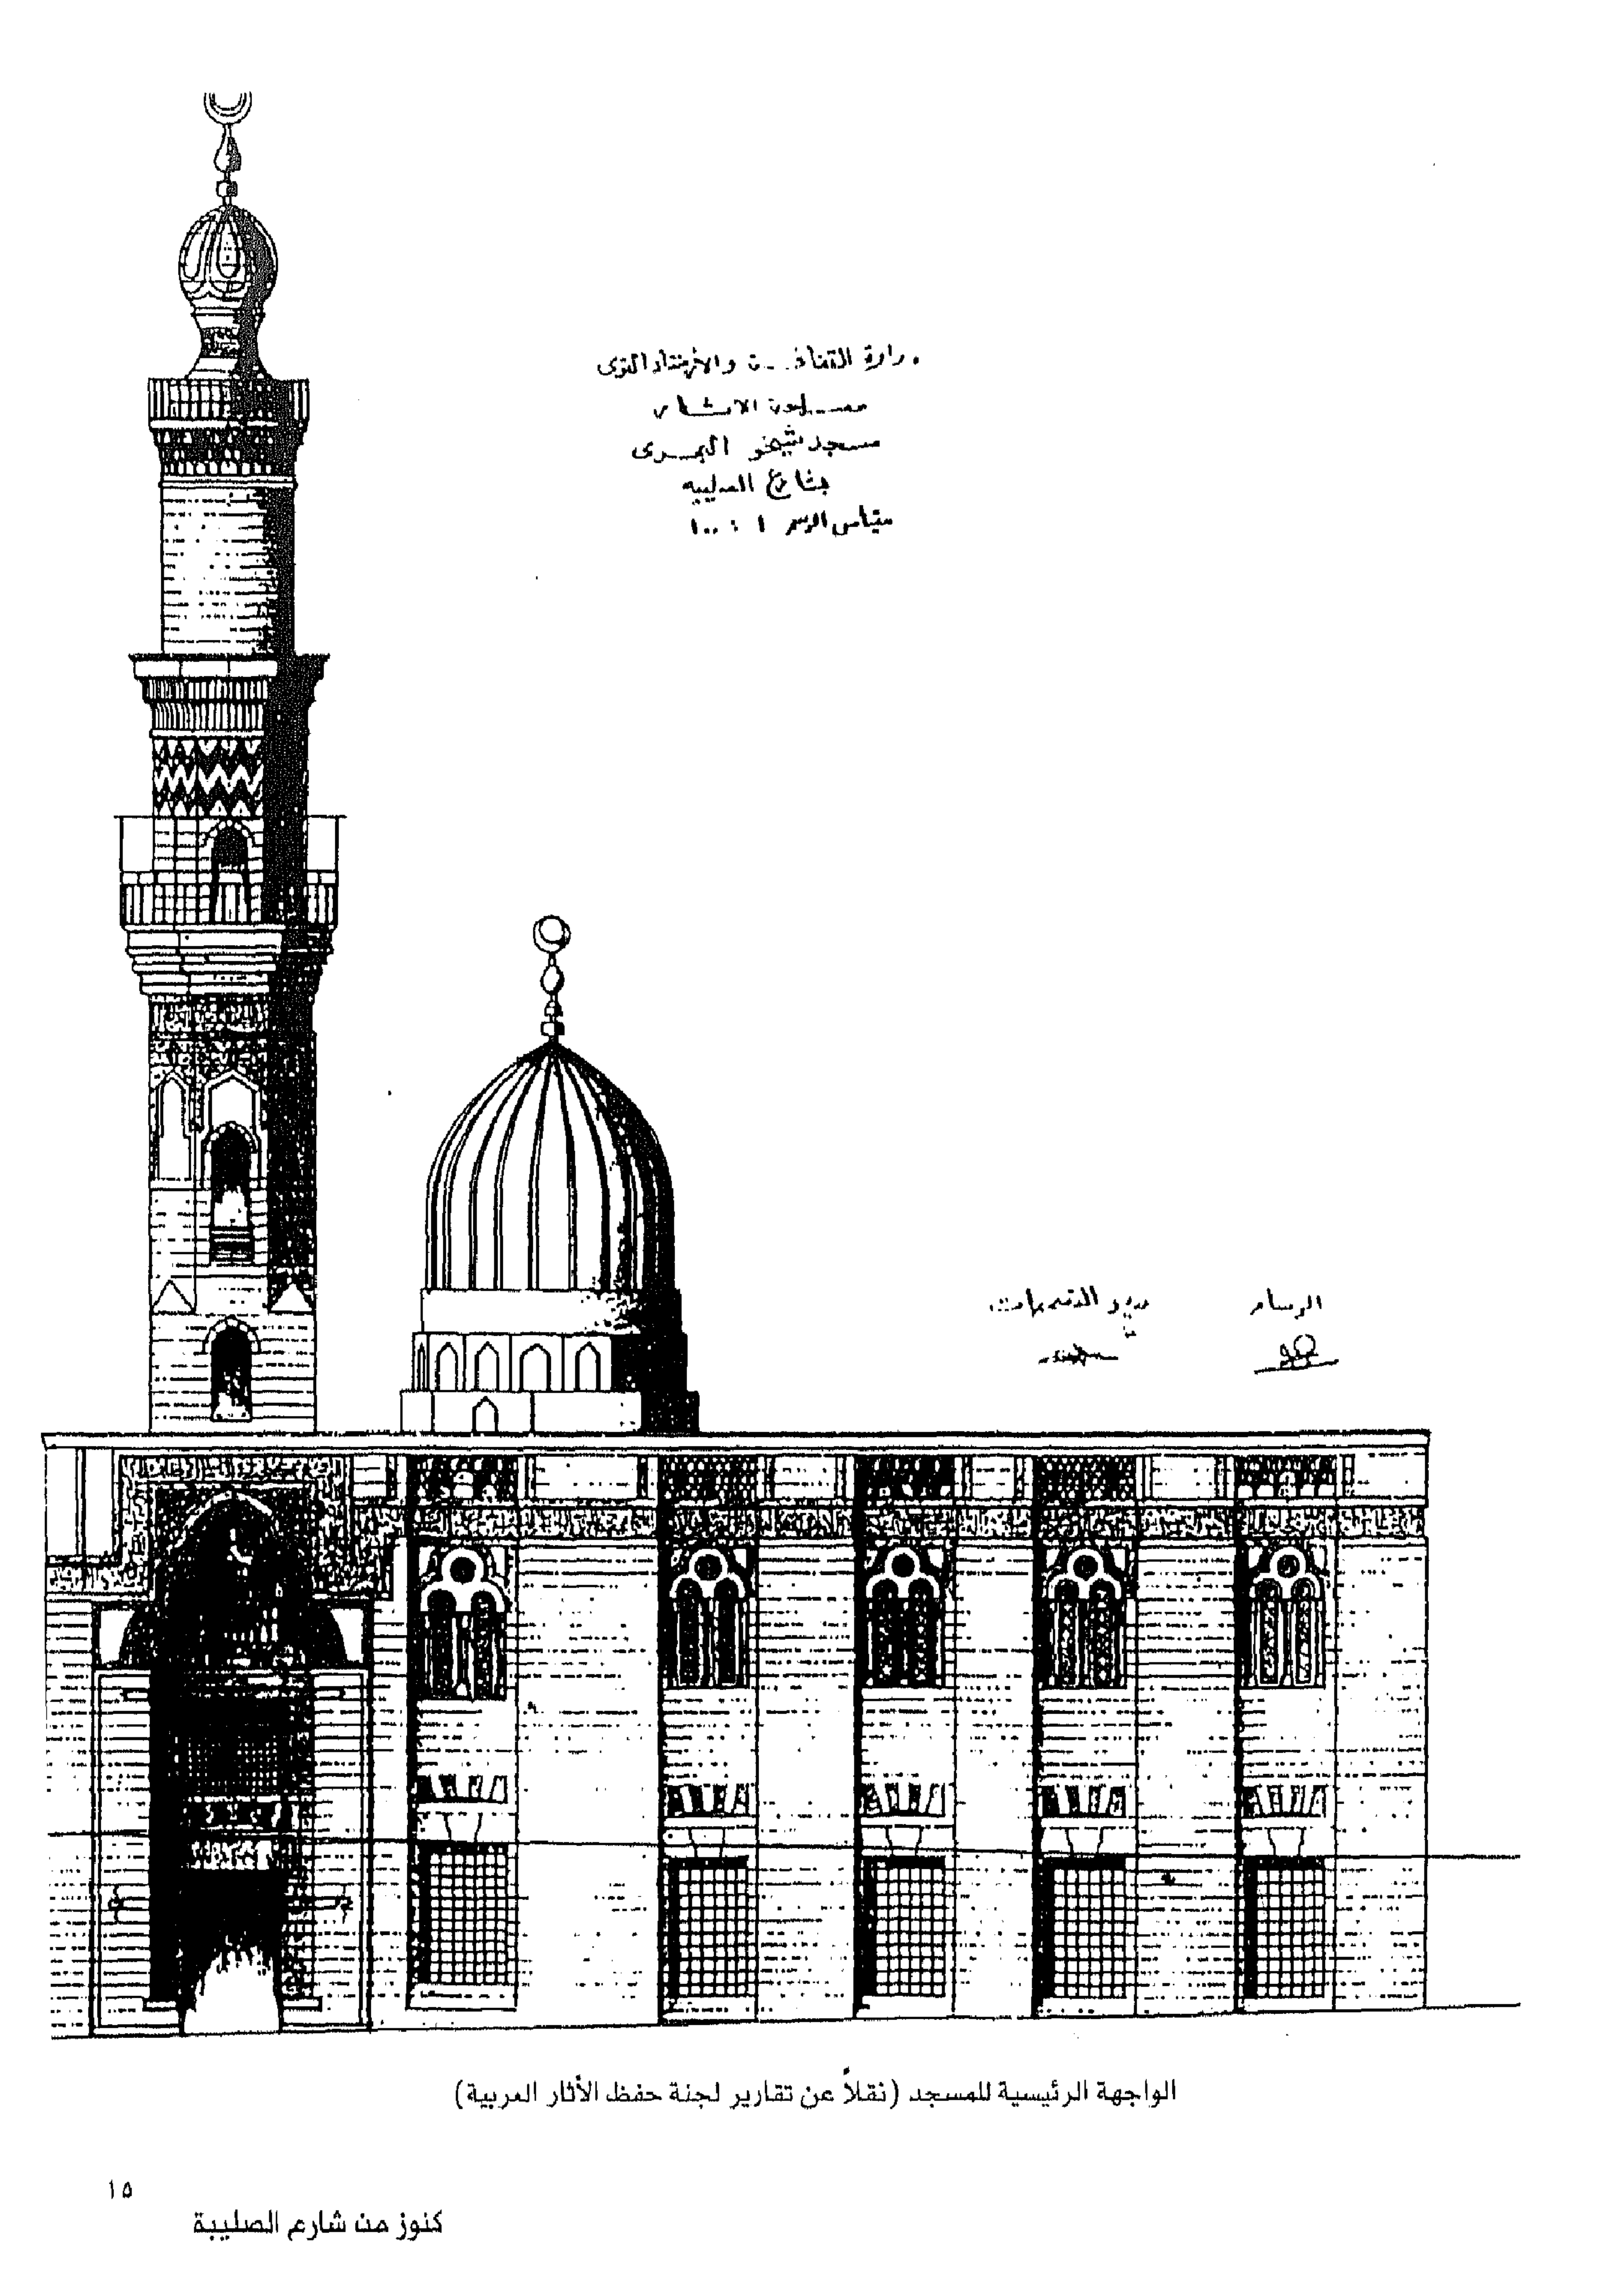 وزارة الثقافة والإرشاد القومى
مصلحة الآثار
مسجد شيخو البحرى
بشارع الصليبه
مقياس الرسم ١ : ١٠٠
الرسام
مدير
الواجهة الرئيسية للمسجد (نقلاً عن تقارير لجنة حفظ الأثار العربية)
١٥
كنوز من شارع الصليبة